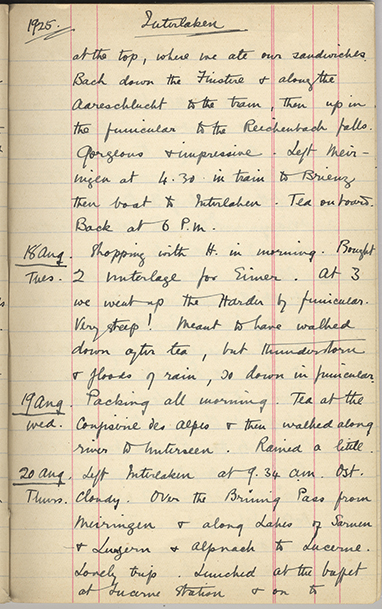 1925. Interlaken
at the top, where we ate our sandwiches.
Back down the Finstere & along the
Aareschlucht to the train, then up in
the funicular to the Reichenbach falls.
Gorgeous & impressive. Left Meir-
ingen at 4.30 in train to Brienz
then boat to Interlaken. Tea on board.
Back at 6 P.m.
18 Aug. Shopping with H. in morning. Bought
Tues. 2 for Eimer. At 3
we went up the Harder by funicular.
Very steep! Meant to have walked
down after tea, but thunderstorm
& floods of rain, so down in funicular.
19 Aug. Packing all morning. Tea at the
Wed. Confiserie des Alpes & then walked along
river to Unterseen. Rained a little.
20 Aug. Left Interlaken at 9.34 a.m. Ost.
Thurs. Cloudy. Over the Brünig Pass from
Meiringen & along Lakes of Sarnen
& Lungern & Alpnach to Lucerne.
Lovely trip. Lunched at the buffet
at Lucerne Station & on to